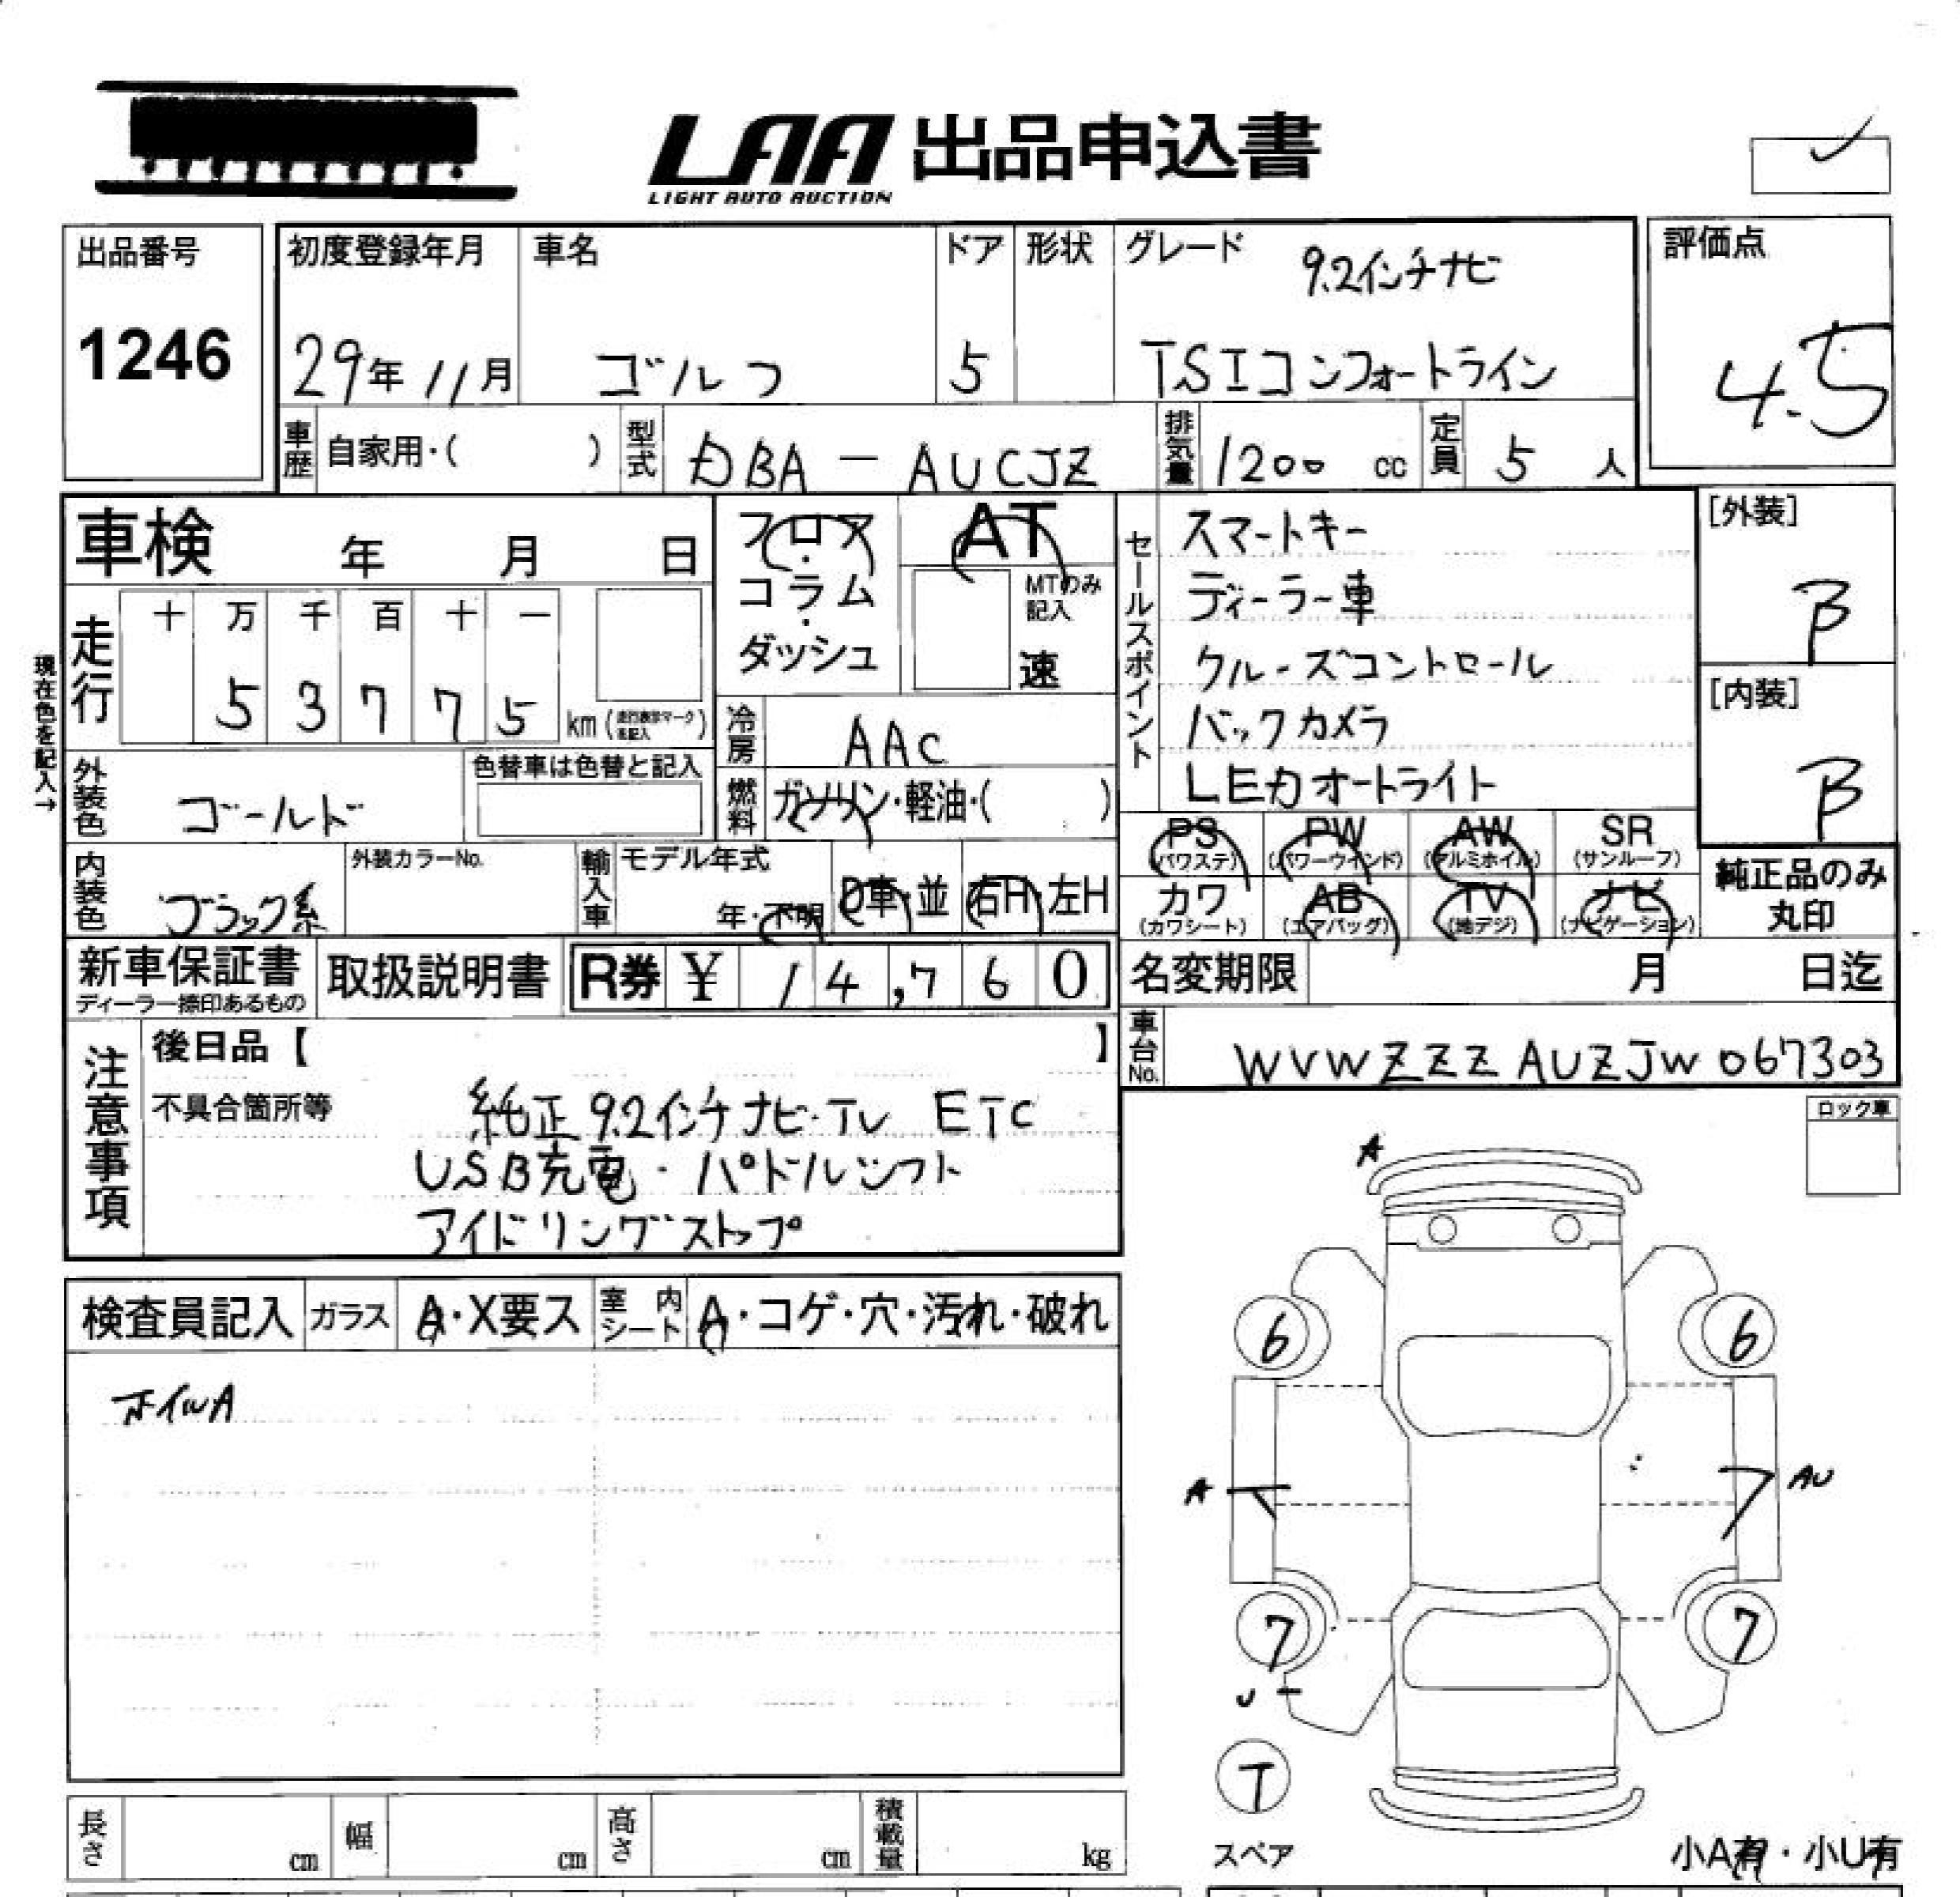 LAA 出品申込書
LIGHT AUTO AUCTION
出品番号
1246
初度登録年月
29年 11月
車名
ゴルフ
ドア
5
形状
グレード
9.2インチナビ
TSIコンフォートライン
評価点
4.5
車歴
自家用・( )
型式
DBA - AUCJZ
排気量
1200 cc
定員
5 人
車検 年 月 日
フロア・コラム・ダッシュ
AT
MTのみ記入
速
セールスポイント
スマートキー
ディーラー車
クルーズコントロール
バックカメラ
LEDオートライト
[外装]
B
[内装]
B
現在色を記入→
走行
十 万 千 百 十 一
5 3 7 7 5 km (走行表示マーク未記入)
冷房
AAC
外装色
ゴールド
色替車は色替と記入
燃料
ガソリン・軽油・( )
PS (パワステ)
PW (パワーウインド)
AW (アルミホイル)
SR (サンルーフ)
内装色
ブラック系
外装カラーNo.
輸入車
モデル年式
年・不明
D車・並
右H・左H
カワ (カワシート)
AB (エアバッグ)
TV (地デジ)
ナビ (ナビゲーション)
純正品のみ丸印
新車保証書
ディーラー捺印あるもの
取扱説明書
R券 ¥ 14,760
名変期限 月 日迄
車台No.
WVWZZZAUZJW067303
注意事項
後日品【 】
不具合箇所等
純正9.2インチナビ・TV ETC
USB充電・パドルシフト
アイドリングストップ
ロック車
A
検査員記入
ガラス
A・X要ス
室内シート
A・コゲ・穴・汚れ・破れ
ホイルA
6
6
A
AU
7
7
U
T
スペア
小A有・小U有
長さ cm
幅 cm
高さ cm
積載量 kg